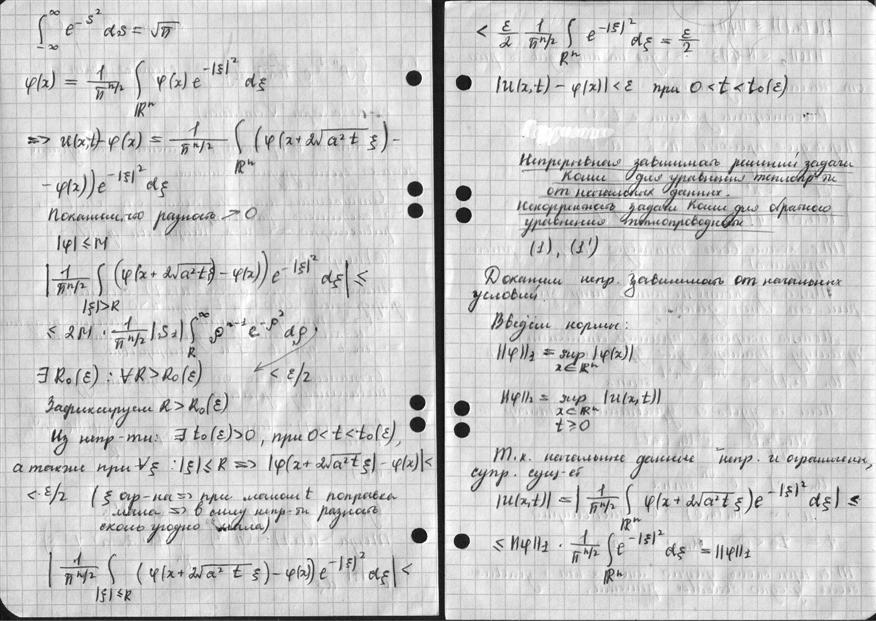 ∫_{-∞}^{∞} e^{-s²} ds = √π
φ(x) = 1/π^{n/2} ∫_{ℝⁿ} φ(x) e^{-|ξ|²} dξ
=> u(x,t) - φ(x) = 1/π^{n/2} ∫_{ℝⁿ} (φ(x + 2√(a²t) ξ) -
- φ(x)) e^{-|ξ|²} dξ
Покажем, что разность → 0
|φ| ≤ M
| 1/π^{n/2} ∫_{|ξ|>R} (φ(x + 2√(a²t) ξ) - φ(x)) e^{-|ξ|²} dξ | ≤
≤ 2M · 1/π^{n/2} |S₁| ∫_R^∞ ρ^{n-1} e^{-ρ²} dρ
∃ R₀(ε) : ∀R > R₀(ε) < ε/2
Зафиксируем R > R₀(ε)
Из непр-ти: ∃ t₀(ε) > 0, при 0 < t < t₀(ε),
а также при ∀ξ : |ξ| ≤ R => |φ(x + 2√(a²t) ξ) - φ(x)| <
< ε/2 (ξ огр-на => при малом t поправка
мала => в силу непр-ти разность
сколь угодно мала)
| 1/π^{n/2} ∫_{|ξ|≤R} (φ(x + 2√(a²t) ξ) - φ(x)) e^{-|ξ|²} dξ | <
< ε/2 1/π^{n/2} ∫_{ℝⁿ} e^{-|ξ|²} dξ = ε/2
|u(x,t) - φ(x)| < ε при 0 < t < t₀(ε)
Непрерывная зависимость решений задачи
Коши для уравнения теплопр-ти
от начальных данных.
Некорректность задачи Коши для обратного
уравнения теплопроводности.
(1), (1')
Докажем непр. зависимость от начальных
условий
Введём нормы:
||φ||₁ = sup_{x∈ℝⁿ} |φ(x)|
||φ||₂ = sup_{x∈ℝⁿ, t≥0} |u(x,t)|
Т.к. начальные данные непр. и ограничен,
супр. сущ-ет
|u(x,t)| = | 1/π^{n/2} ∫_{ℝⁿ} φ(x + 2√(a²t) ξ) e^{-|ξ|²} dξ | ≤
≤ ||φ||₁ · 1/π^{n/2} ∫_{ℝⁿ} e^{-|ξ|²} dξ = ||φ||₁